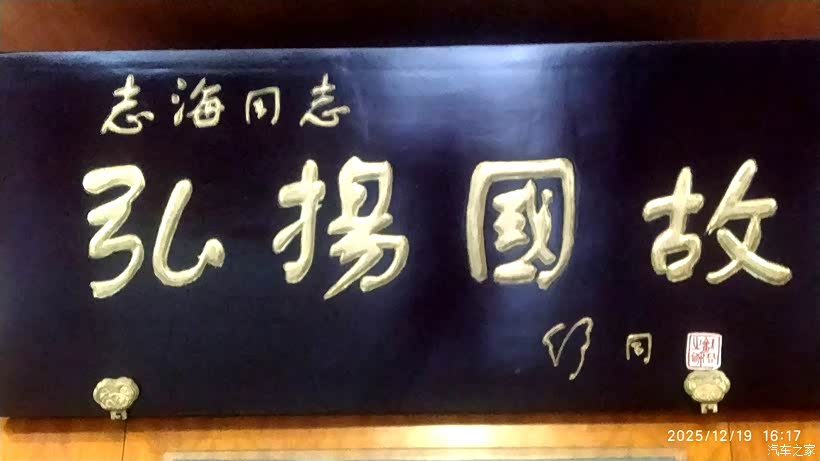 志海同志
弘揚國故
舒同
2025/12/19 16:17
汽车之家